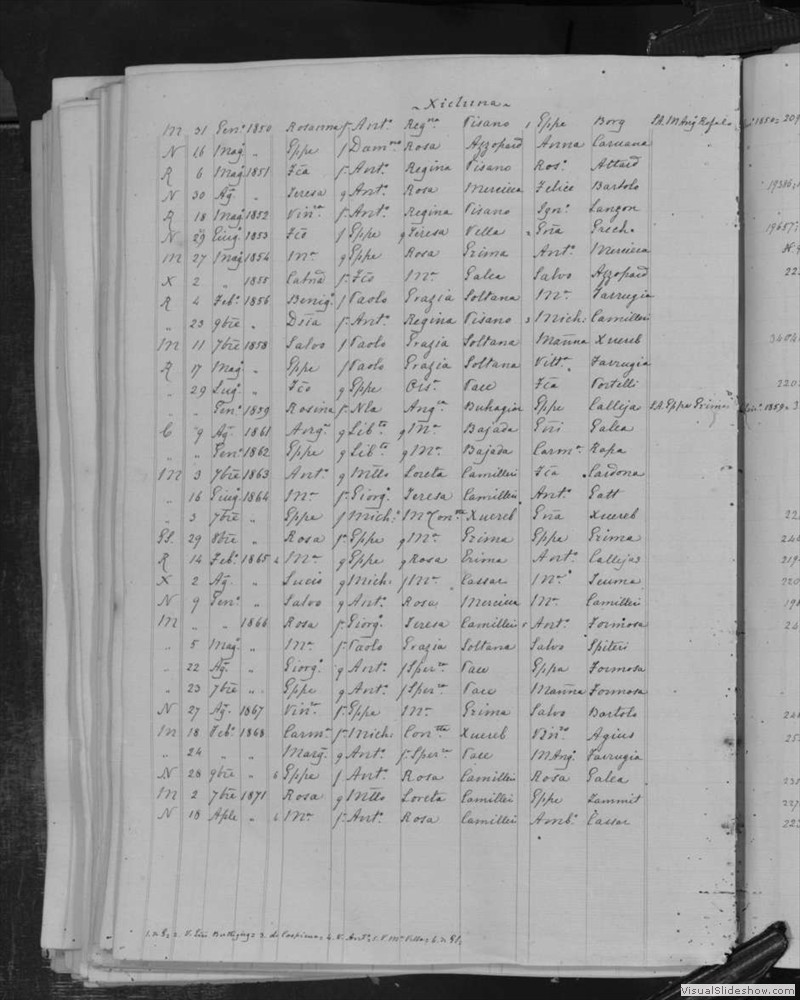 ~ Xicluna ~
M 31 Genº 1850 Rosanna f. Antº Regna Pisano 1 Eppe Borg S.A. M Ang Refalo
N 16 Magº " Eppe f Domco Rosa Azzopard Anna Caruana
R 6 Magº 1851 Fca f. Antº Regina Pisano Rosº Attard
N 30 Agº " Teresa g Antº Rosa Mercieca Felice Bartolo
R 18 Magº 1852 Vinca f. Antº Regina Pisano Ignº Langon
N 29 Giugº 1853 Fco f Eppe g Teresa Vella 2 Gna Grech
M 27 Magº 1854 Mª g Eppe Rosa Grima Antº Mercieca
X 2 " 1855 Catna f. Fco Mª Galea Salvo Azzopard
R 4 Febº 1856 Benigº f Paolo Grazia Soltana Mª Farrugia
" 23 9bre " f. Antº Regina Pisano 3 Mich. Camilleri
M 11 7bre 1858 Salvo f Paolo Grazia Soltana Manna Xuereb
R 17 Magº " Eppe f Paolo Grazia Soltana Vittª Farrugia
" 29 Lugº " Fco g Eppe Orsª Pace Fca Portelli
" " Genº 1859 Rosina f. Nla Angca Buhagiar Eppe Calleja S.A. Eppe Grima
C 9 Agº 1861 g Libto g Mª Bajada Gni Galea
" " Genº 1862 Eppe g Libto g Mª Bajada Carmª Rapa
M 3 7bre 1863 Antº g Mtto Loreta Camilleri Fca Cardona
" 16 Giugº 1864 Mª f. Giorgº Teresa Camilleri Antº Gatt
" 3 7bre " Eppe f Mich. M Contta Xuereb Gna Xuereb
29 8bre " Rosa f. Eppe g Mª Grima Eppe Grima
R 14 Febº 1865 4 Mª g Eppe g Rosa Grima Antº Calleja
X 2 Agº " Lucio g Mich. f Mª Cassar Mª Teuma
N 9 Genº " Salvo g Antº Rosa Mercieca Mª Camilleri
M " " 1866 Rosa f. Giorgº Teresa Camilleri 5 Antº Formosa
" 5 Magº " Mª f. Paolo Grazia Soltana Salvo Spiteri
" 22 Agº " Giorgº g Antº f Sperza Pace Eppa Formosa
" 23 7bre " Eppe g Antº f Sperza Pace Manna Formosa
N 27 Agº 1867 Vinca f. Eppe Mª Grima Salvo Bartolo
M 18 Febº 1868 Carmª f. Mich. Contta Xuereb Vinco Agius
" 24 " " Margª g Antº f. Sperza Pace M Angª Farrugia
N 28 9bre " 6 Eppe f Antº Rosa Camilleri Rosa Galea
M 2 7bre 1871 Rosa g Mtto Loreta Camilleri Eppe Zammit
N 18 Aple " 6 Mª f. Antº Rosa Camilleri Ambº Cassar
VisualSlideshow.com